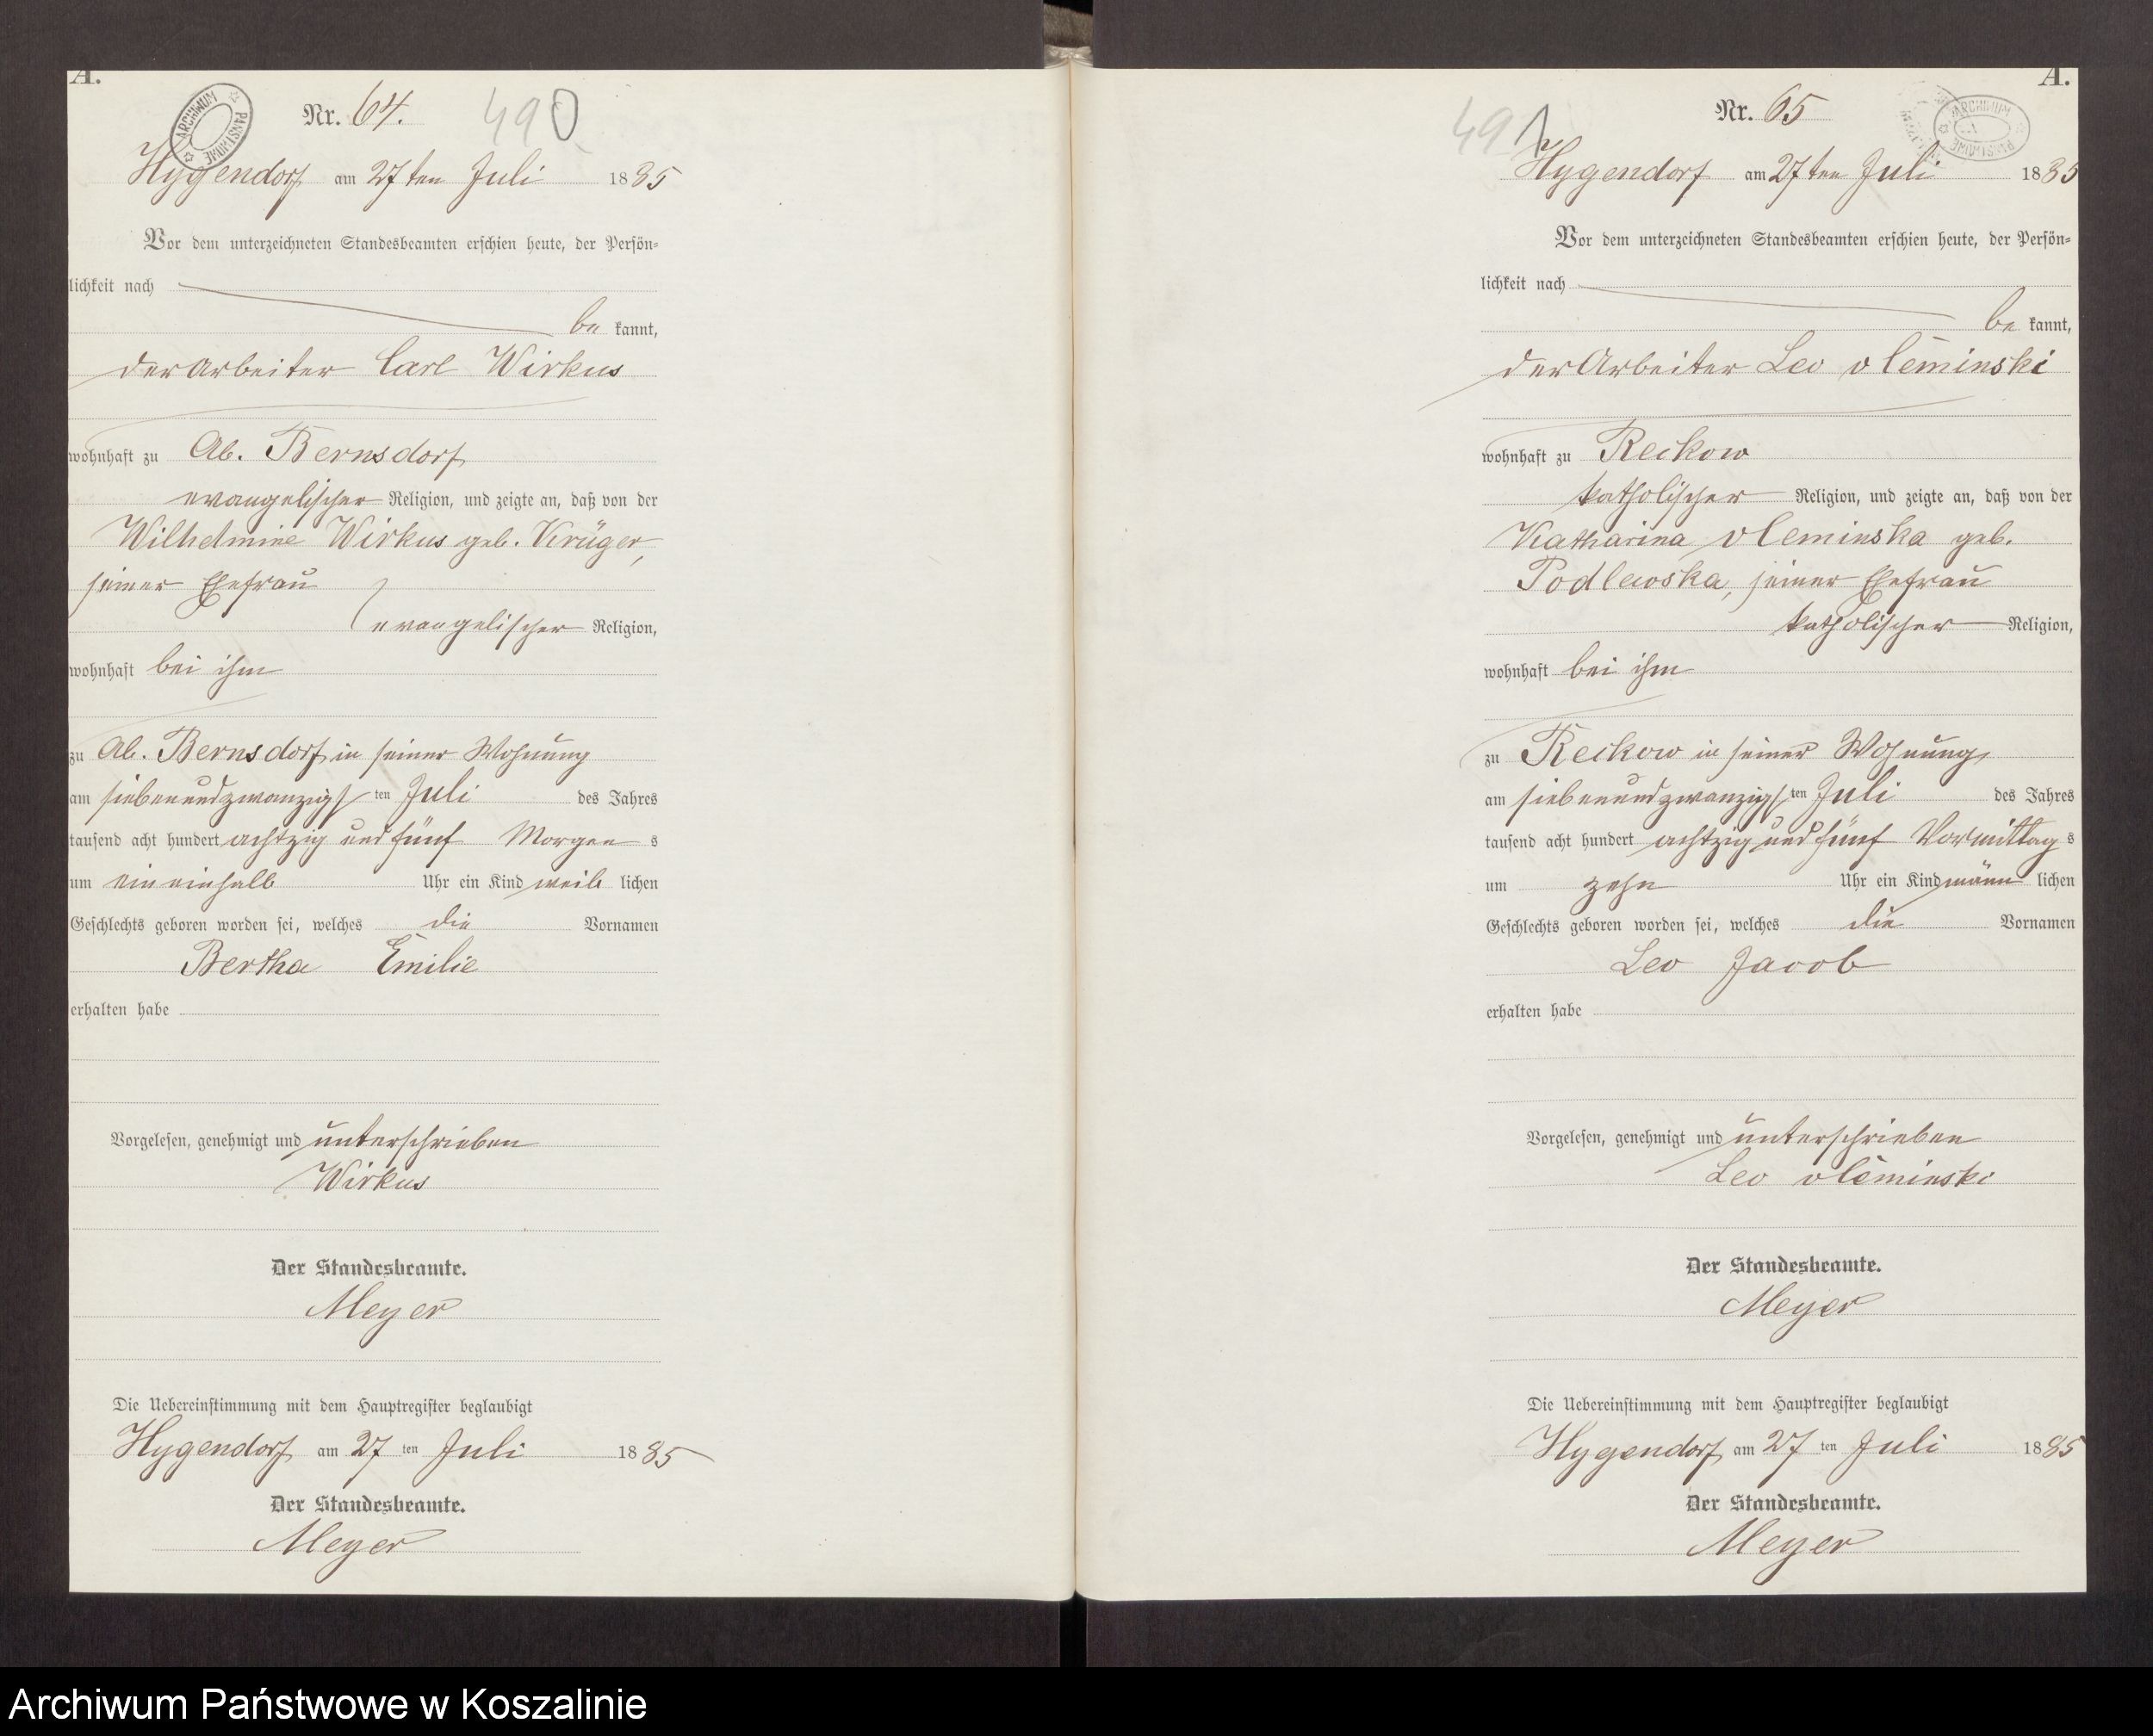 A.
ARCHIWUM PAŃSTWOWE
Nr. 64.
490
Hygendorf am 27ten Juli 1885
Vor dem unterzeichneten Standesbeamten erschien heute, der Persön-
lichkeit nach
be kannt,
der Arbeiter Carl Wirkus
wohnhaft zu Ab. Bernsdorf
evangelischer Religion, und zeigte an, daß von der
Wilhelmine Wirkus geb. Krüger,
seiner Ehefrau
evangelischer Religion,
wohnhaft bei ihm
zu Ab. Bernsdorf in seiner Wohnung
am siebenundzwanzigsten Juli des Jahres
tausend acht hundert achtzig und fünf Morgens
um ein einhalb Uhr ein Kind weiblichen
Geschlechts geboren worden sei, welches die Vornamen
Bertha Emilie
erhalten habe
Vorgelesen, genehmigt und unterschrieben
Wirkus
Der Standesbeamte.
Meyer
Die Uebereinstimmung mit dem Hauptregister beglaubigt
Hygendorf am 27 ten Juli 1885
Der Standesbeamte.
Meyer
A.
Nr. 65
491
ARCHIWUM PAŃSTWOWE
Hygendorf am 27ten Juli 1885
Vor dem unterzeichneten Standesbeamten erschien heute, der Persön-
lichkeit nach
be kannt,
der Arbeiter Leo v Cieminski
wohnhaft zu Reckow
katholischer Religion, und zeigte an, daß von der
Katharina v Cieminska geb.
Podlewska, seiner Ehefrau
katholischer Religion,
wohnhaft bei ihm
zu Reckow in seiner Wohnung
am siebenundzwanzigsten Juli des Jahres
tausend acht hundert achtzig und fünf Vormittags
um zehn Uhr ein Kind männlichen
Geschlechts geboren worden sei, welches die Vornamen
Leo Jacob
erhalten habe
Vorgelesen, genehmigt und unterschrieben
Leo v Cieminski
Der Standesbeamte.
Meyer
Die Uebereinstimmung mit dem Hauptregister beglaubigt
Hygendorf am 27 ten Juli 1885
Der Standesbeamte.
Meyer
Archiwum Państwowe w Koszalinie